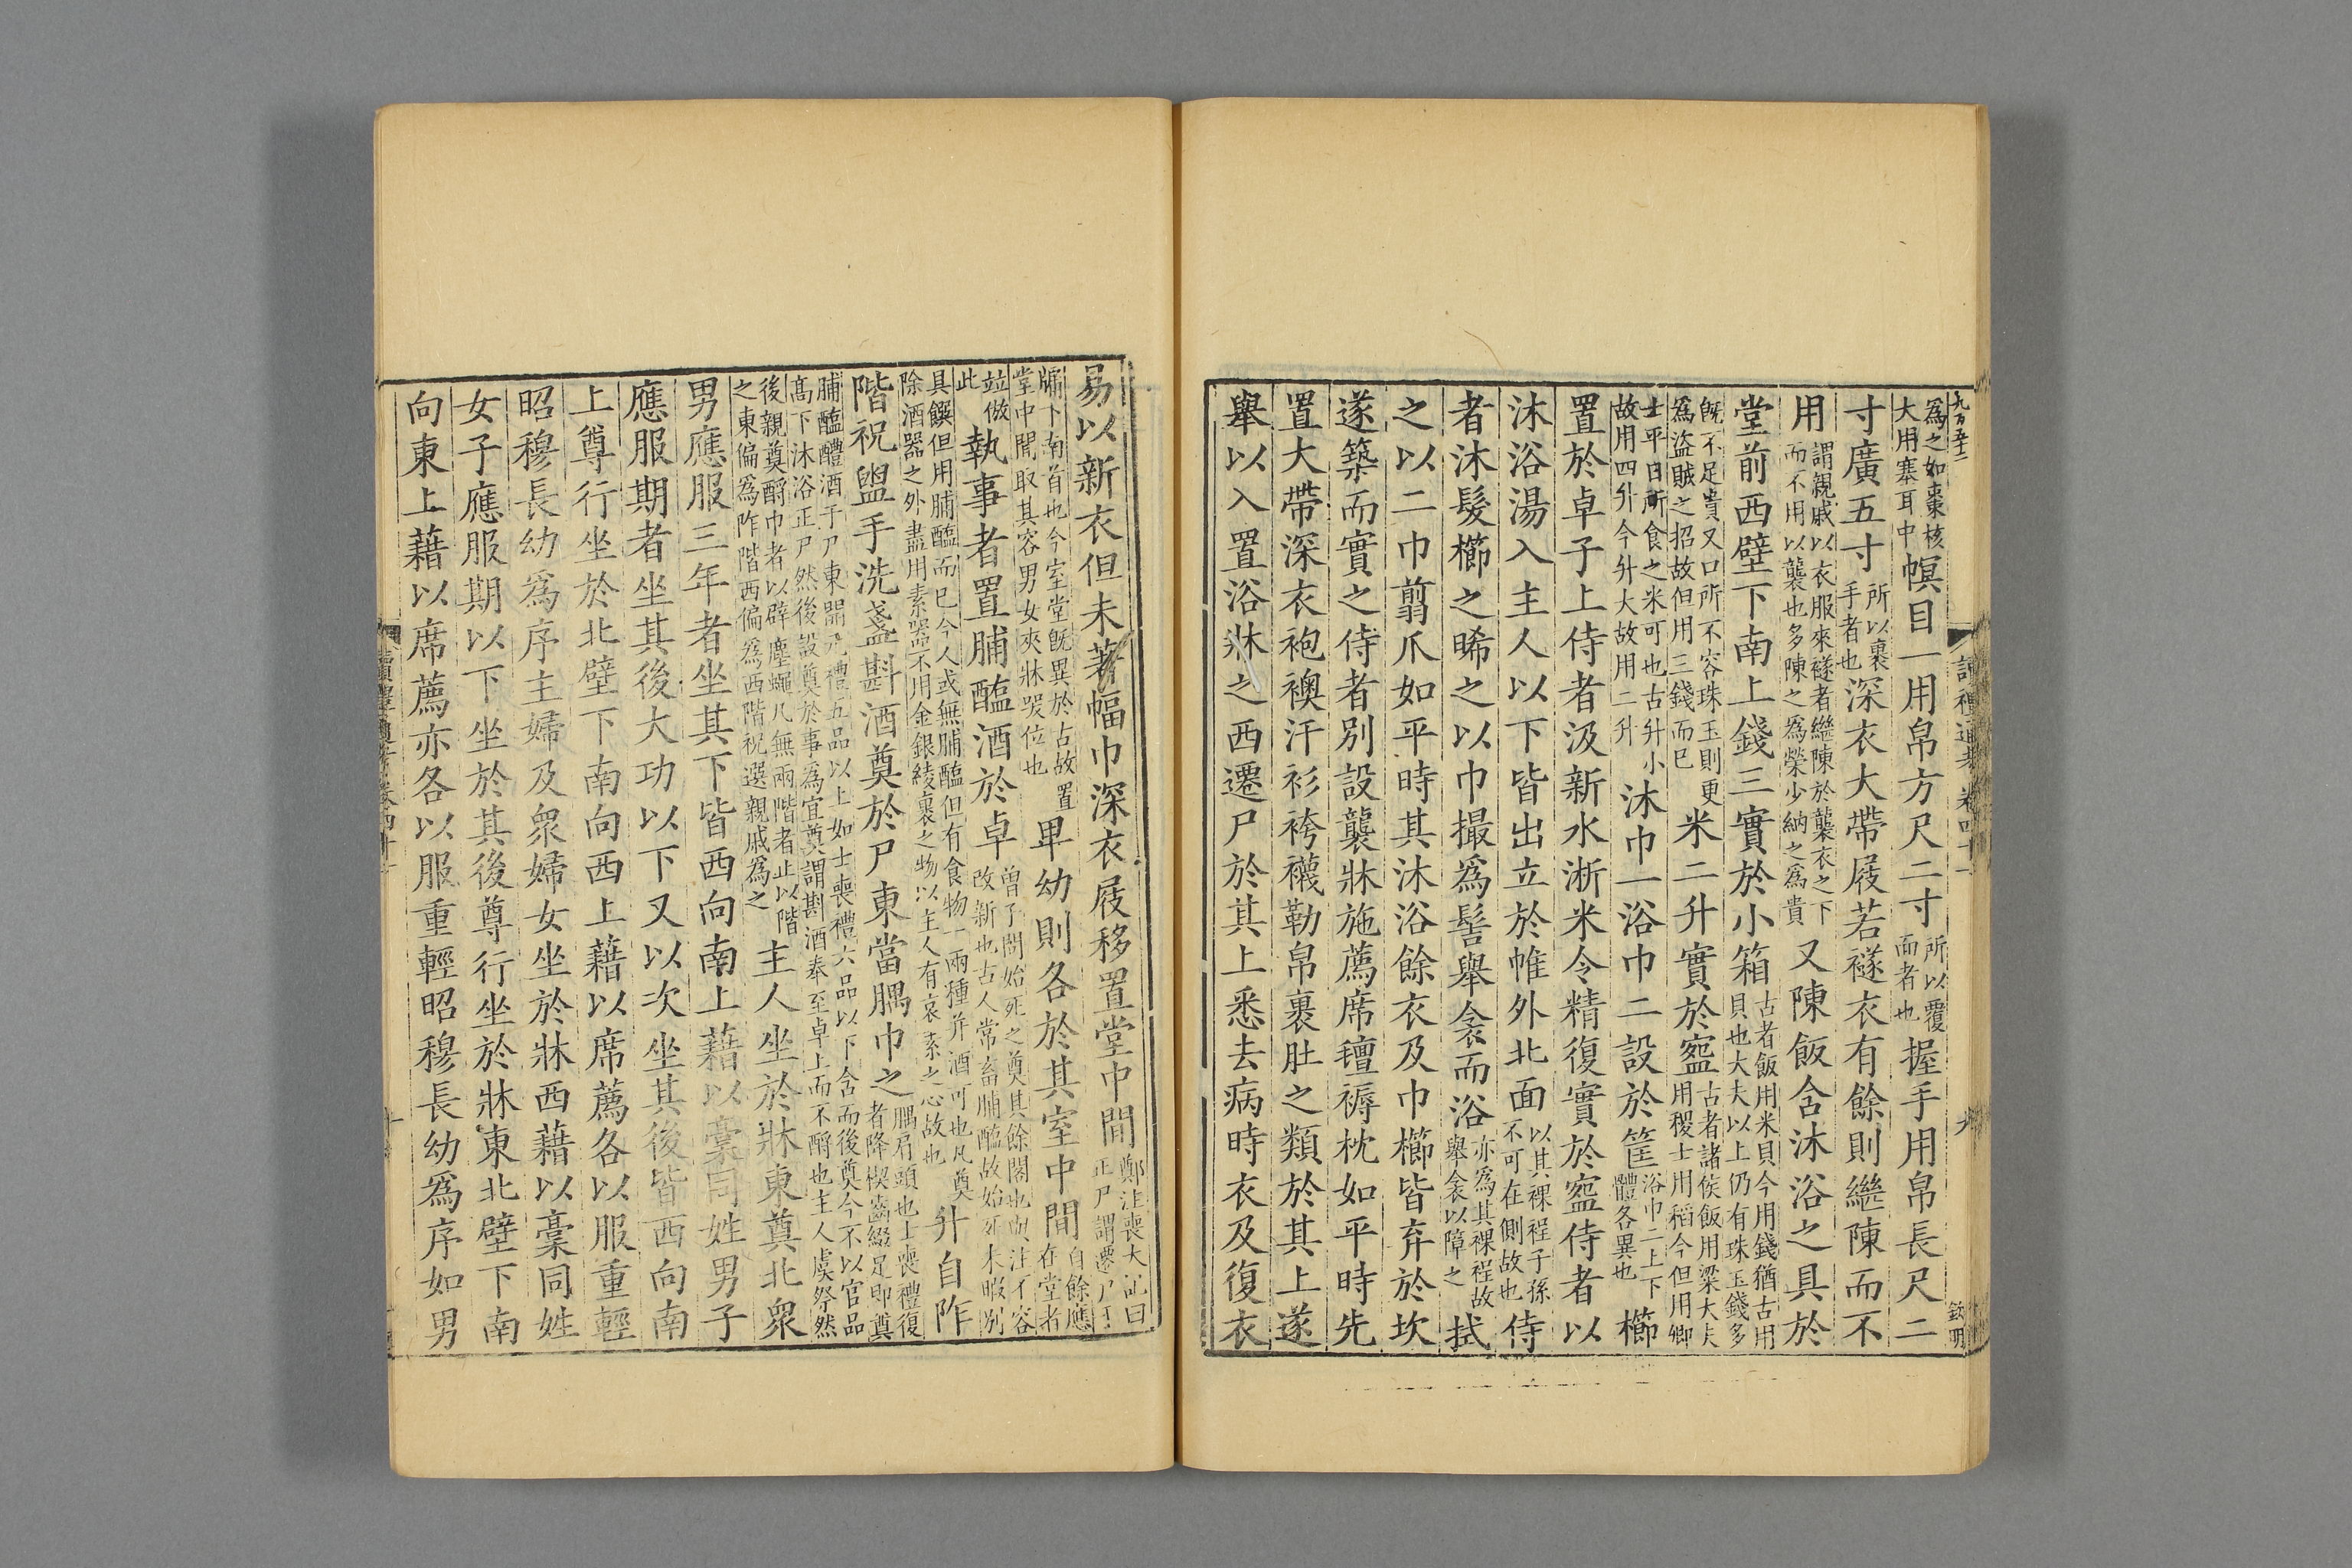 九百五十二
為之如棗核
大用塞耳中
幎目一用帛方尺二寸
所以覆
面者也
握手用帛長尺二
寸廣五寸
所以裹
手者也
深衣大帶屐若襚衣有餘則繼陳而不
用
謂親戚以衣服來襚者繼陳於襲衣之下
而不用以襲也多陳之為榮少納之為貴
又陳飯含沐浴之具於
堂前西壁下南上錢三實於小箱
古者飯用米貝今用錢猶古用
貝也大夫以上仍有珠玉錢多
既不足貴又口所不容珠玉則更
為盜賊之招故但用三錢而已
米二升實於盌
古者諸侯飯用粱大夫
用稷士用稻今但用鄉
士平日所食之米可也古升小
故用四升今升大故用二升
沐巾一浴巾二設於筐
浴巾二上下
體各異也
櫛
置於卓子上侍者汲新水淅米令精復實於盌侍者以
沐浴湯入主人以下皆出立於帷外北面
以其裸裎子孫
不可在側故也
侍
者沐髮櫛之晞之以巾撮為髻舉衾而浴
亦為其裸裎故
舉衾以障之
拭
之以二巾翦爪如平時其沐浴餘衣及巾櫛皆弃於坎
遂築而實之侍者別設襲牀施薦席氊褥枕如平時先
置大帶深衣袍襖汗衫袴襪勒帛裹肚之類於其上遂
舉以入置浴牀之西遷尸於其上悉去病時衣及復衣
讀禮通考 卷四十一
九
欽明
易以新衣但未著幅巾深衣屐移置堂中間
鄭注喪大記曰
正尸謂遷尸于
牖下南首也今室堂既異於古故置
堂中間取其容男女夾牀哭位也
卑幼則各於其室中間
自餘應
在堂者
竝倣
此
執事者置脯醢酒於卓
曾子問始死之奠其餘閣也與注不容
改新也古人常畜脯醢故始死未暇別
具饌但用脯醢而已今人或無脯醢但有食物一兩種并酒可也凡奠
除酒器之外盡用素器不用金銀綾裹之物以主人有哀素之心故也
升自阼
階祝盥手洗盞斟酒奠於尸東當腢巾之
腢肩頭也士喪禮復
者降楔齒綴足即奠
脯醢醴酒于尸東開元禮五品以上如士喪禮六品以下含而後奠今不以官品
高下沐浴正尸然後設奠於事為宜奠謂斟酒奉至卓上而不酹也主人虞祭然
後親奠酹巾者以辟塵蠅凡無兩階者止以階
之東偏為阼階西偏為西階祝選親戚為之
主人坐於牀東奠北眾
男應服三年者坐其下皆西向南上藉以藁同姓男子
應服期者坐其後大功以下又以次坐其後皆西向南
上尊行坐於北壁下南向西上藉以席薦各以服重輕
昭穆長幼為序主婦及眾婦女坐於牀西藉以藁同姓
女子應服期以下坐於其後尊行坐於牀東北壁下南
向東上藉以席薦亦各以服重輕昭穆長幼為序如男
讀禮通考 卷四十一